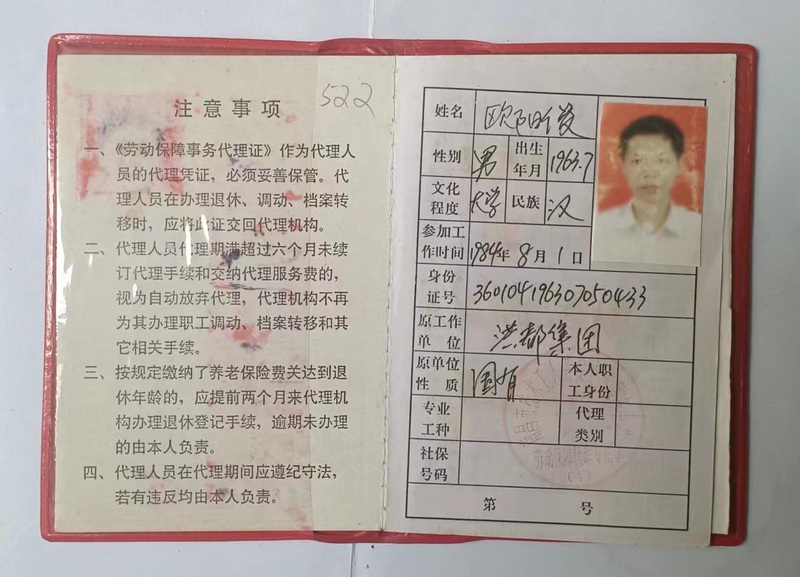 注意事项
522
一、《劳动保障事务代理证》作为代理人
员的代理凭证，必须妥善保管。代
理人员在办理退休、调动、档案转
移时，应将此证交回代理机构。
二、代理人员代理期满超过六个月未续
订代理手续和交纳代理服务费的，
视为自动放弃代理，代理机构不再
为其办理职工调动、档案转移和其
它相关手续。
三、按规定缴纳了养老保险费关达到退
休年龄的，应提前两个月来代理机
构办理退休登记手续，逾期未办理
的由本人负责。
四、代理人员在代理期间应遵纪守法，
若有违反均由本人负责。
姓名 欧阳俊
性别 男 出生年月 1963.7
文化程度 大学 民族 汉
参加工作时间 1984年8月1日
身份证号 360104196307050433
原工作单位 洪都集团
原单位性质 国有 本人职工身份
专业工种 代理类别
社保号码
第 号